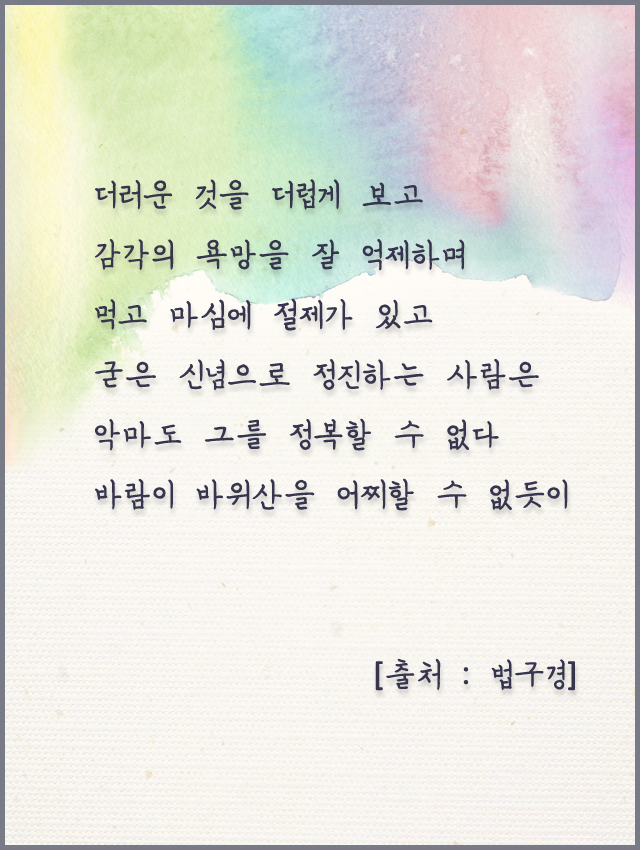 더러운 것을 더럽게 보고
감각의 욕망을 잘 억제하며
먹고 마심에 절제가 있고
굳은 신념으로 정진하는 사람은
악마도 그를 정복할 수 없다
바람이 바위산을 어찌할 수 없듯이
[출처 : 법구경]